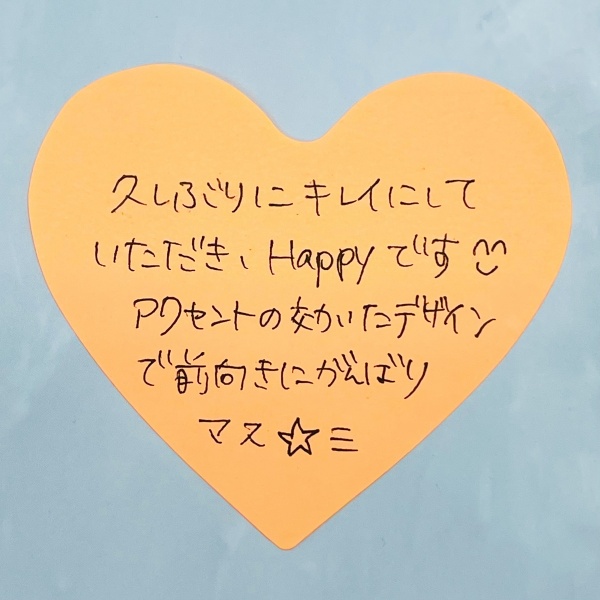 久しぶりにキレイにして
いただき、Happyです
アクセントの効いたデザイン
で前向きにがんばり
マス☆ミ